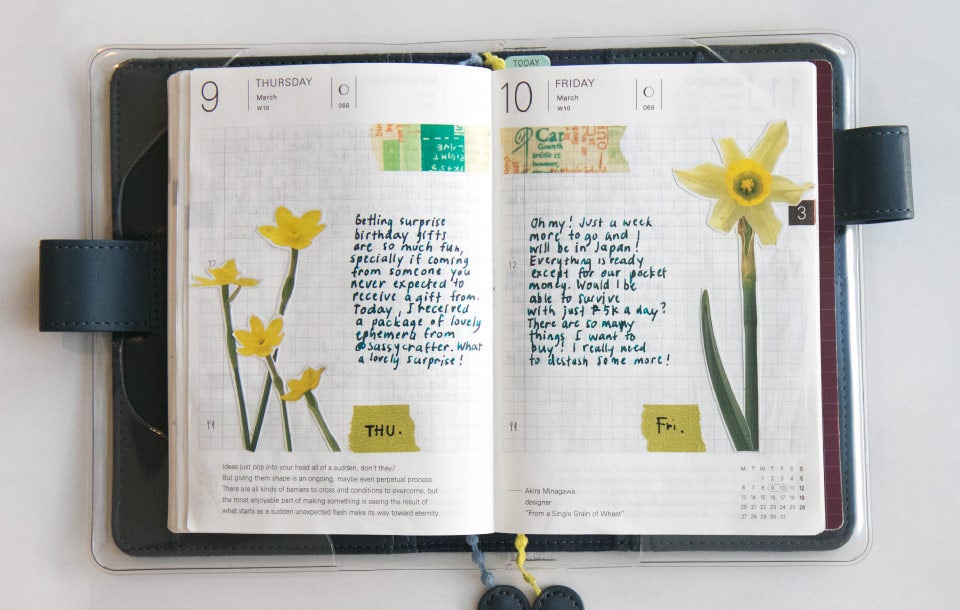 9
THURSDAY
March
W10
069
Getting surprise
birthday gifts
are so much fun,
specially if coming
from someone you
never expected to
receive a gift from.
Today, I received
a package of lovely
ephemera from
@sassycrafter. What
a lovely surprise!
12
THU.
Ideas just pop into your head all of a sudden, don't they?
But giving them shape is an ongoing, maybe even perpetual process.
There are all kinds of barriers to cross and conditions to overcome, but
the most enjoyable part of making something is seeing the result of
what starts as a sudden unexpected flash make its way toward eternity.
TODAY
10
FRIDAY
March
W10
069
Car
Growth
artistic er
however,
3
Oh my! Just a week
more to go and I
will be in Japan!
Everything is ready
except for our pocket
money. Would I be
able to survive
with just ₱5K a day?
There are so many
things I want to
buy! I really need
to destash some more!
12
Fri.
Akira Minagawa
designer
"From a Single Grain of Wheat"
M T W T F S S
1 2 3 4 5
6 7 8 9 10 11 12
13 14 15 16 17 18 19
20 21 22 23 24 25 26
27 28 29 30 31